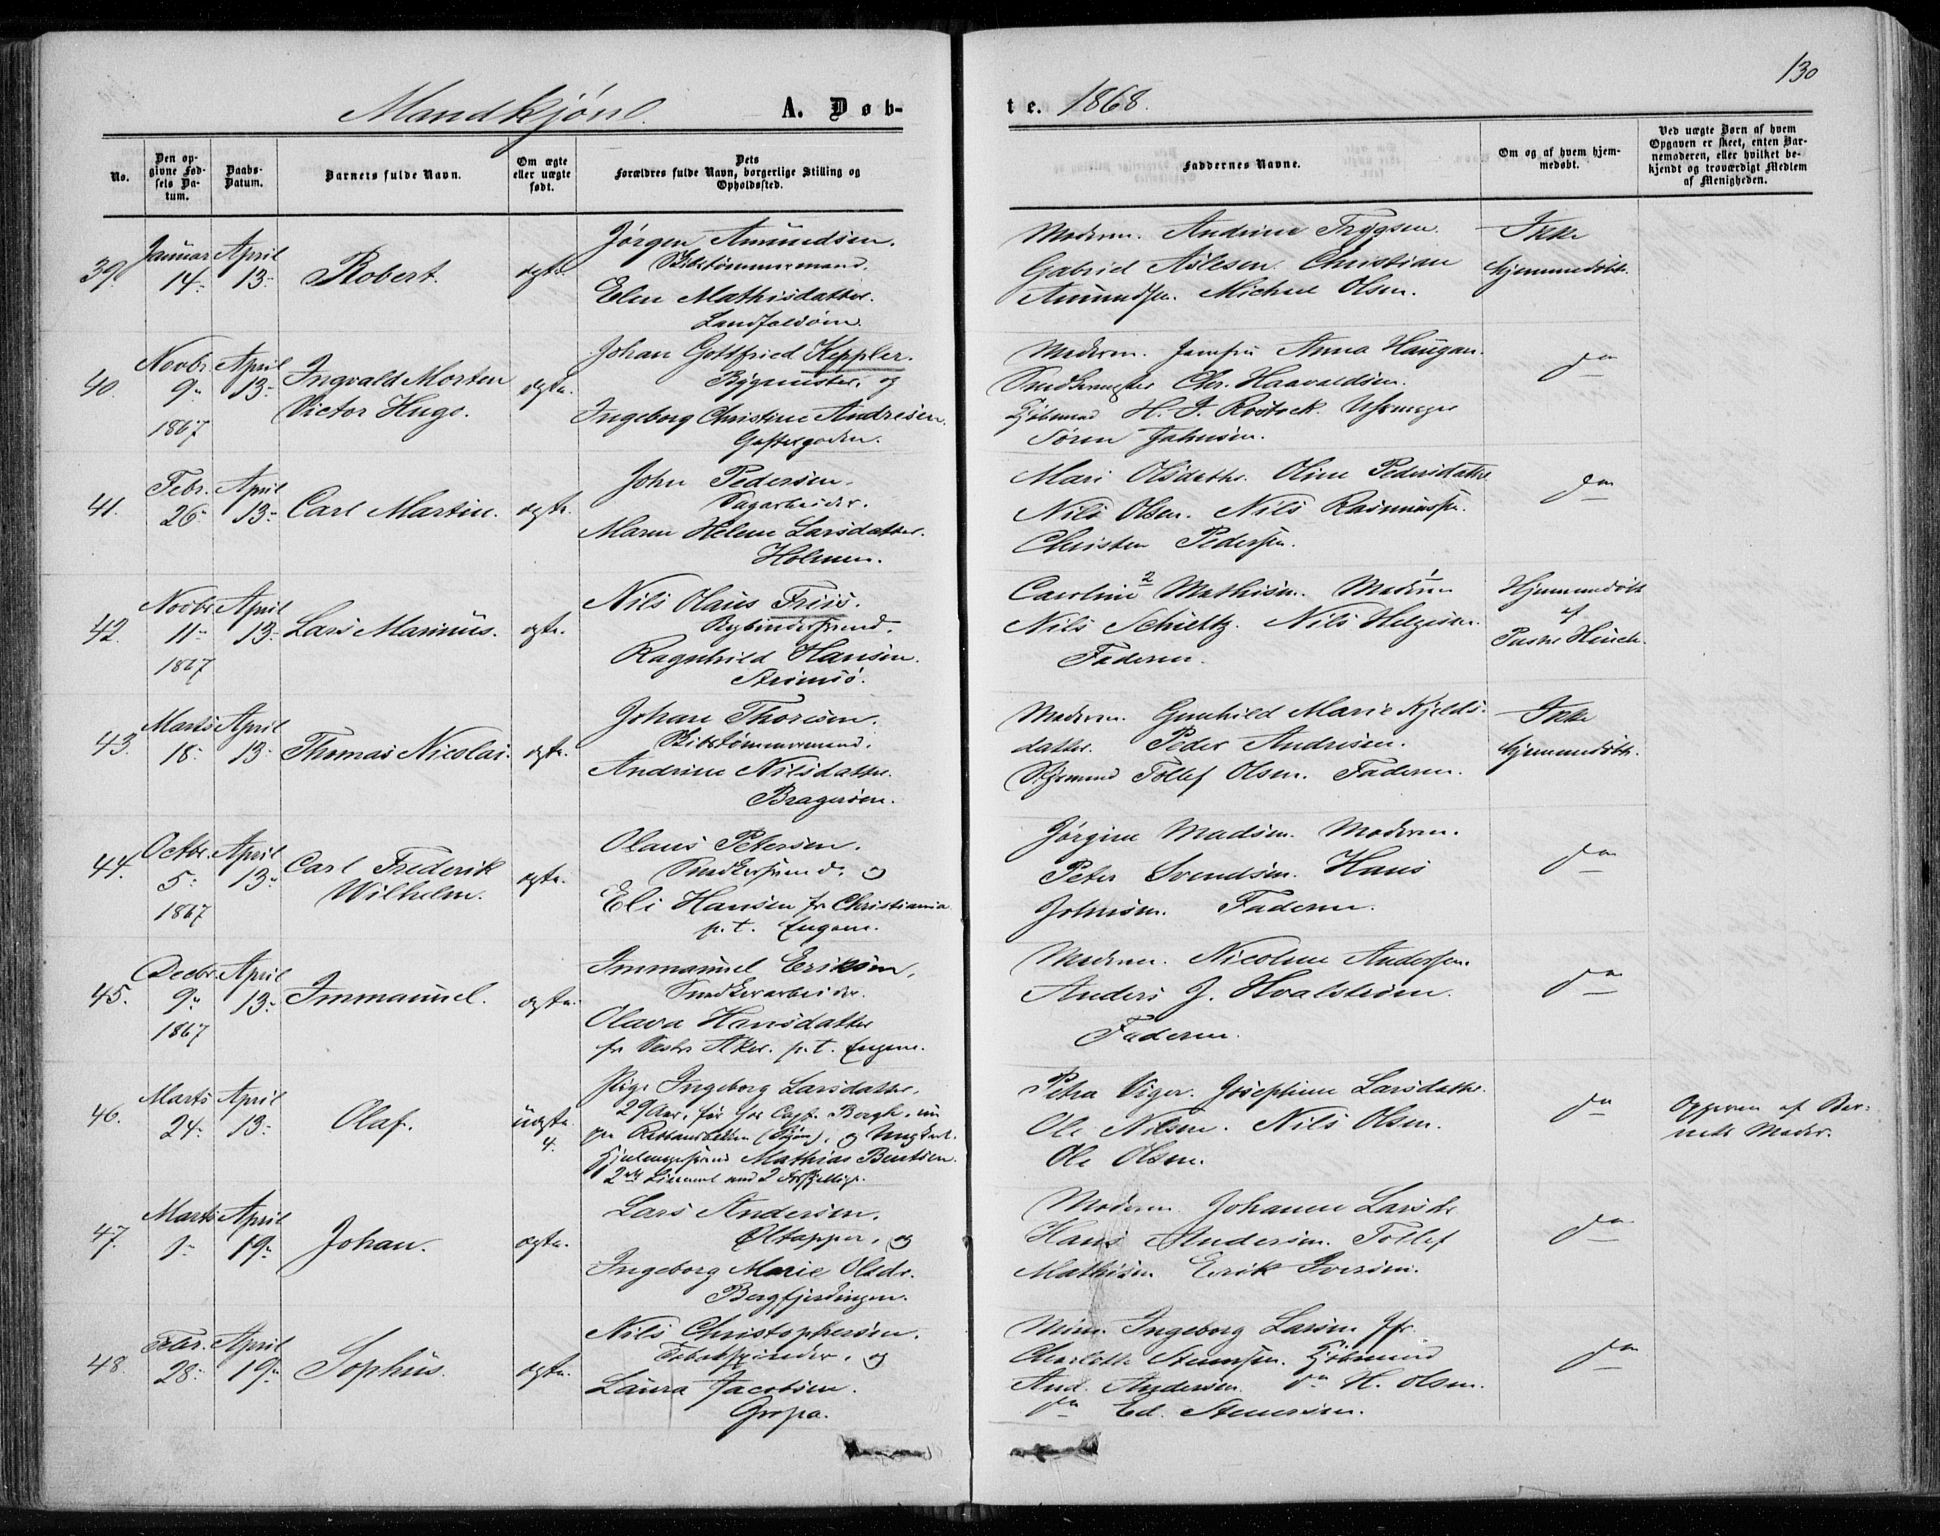 130
Mandkjøn. A. Døb-
te. 1868.
No.
Den op-
givne Fød-
sels Da-
tum.
Daabs-
Datum.
Barnets fulde Navn.
Om ægte
eller uægte
født.
Dets
Forældres fulde Navn, borgerlige Stilling og
Opholdssted.
Faddernes Navne.
Om og af hvem hjem-
medøbt.
Ved uægte Børn af hvem
Opgaven er skeet, enten Bar-
nemoderen, eller hvilket be-
kjendt og troværdigt Medlem
af Menigheden.
39.
Januar
14.
April
13.
Robert.
ægte.
Jørgen Amundsen.
Skibstømmermand.
Elen Mathisdatter.
Landfaldøen.
Moderen. Andrine Trygsen.
Gabriel Aslesen. Christian
Amundsen. Michael Olsen.
Ikke
hjemmedøbt.
40.
Novbr.
9.
1867
April
13.
Ingvald Morten
Victor Hugo.
ægte.
Johan Gottfried Keppler.
Bygmester, og
Ingeborg Christine Andresen.
Moderen. Jomfru Anna Haugan.
Chr. Haavaldsen.
Kjøbmand H. J. Rostock. Uhrmager
Søren Johnsen.
do
41.
Febr.
26.
April
13.
Carl Martin.
ægte.
John Pedersen.
Sagarbeider.
Maren Helene Larsdatter.
Holmen.
Mari Olsdatter. Oline Pedersdatter
Nils Olsen. Nils Rasmussen.
Christen Pedersen.
do
42.
Novbr.
11.
1867
April
13.
Lars Marinius.
ægte.
Nils Olaus Friis.
Bogbindersvend.
Ragnhild Hansen.
Strømsø.
Caroline Mathisen. Moderen
Nils Schieltz. Nils Helgesen.
Faderen.
Hjemmedøbt
af
Pastor Hinch.
43.
Marts
18.
April
13.
Thomas Nicolai.
ægte.
Johan Thoresen.
Skibstømmermand.
Andrine Nilsdatter.
Bragerøen.
Moderen. Gunhild Marie Kjelds-
datter. Peder Andresen.
Tollef Olsen. Faderen.
Ikke
hjemmedøbt.
44.
Octbr.
5.
1867
April
13.
Carl Frederik
Wilhelm.
ægte.
Olaus Petersen.
Snedkersvend, og
Eli Hansen fr Christiania
p.t. Engene.
Jørgine Madsen. Moderen.
Peter Svendsen. Hans
Johnsen. Faderen.
do
45.
Decbr.
9.
1867
April
13.
Immanuel.
ægte.
Immanuel Eriksen.
Snedkerarbeider.
Olava Hansdatter
fr Vestre Aker. p.t. Engene.
Moderen. Nicoline Andersen.
Anders J. Hvalstrøen.
Faderen.
do
46.
Marts
24.
April
13.
Olaf.
uægte.
4.
Pige Ingeborg Larsdatter,
29 Aar, før hos Capt. Bergh, nu
og Ungkarl.
Mathias Bentsen.
Petra Viger. Josephine Larsdatter.
Ole Nilsen. Nils Olsen.
Ole Olsen.
do
Opgaven af Bar-
nets Moder.
47.
Marts
1.
April
19.
Johan.
ægte.
Lars Andersen.
Øltapper, og
Ingeborg Marie Olsdr.
Bergfjerdingen.
Moderen. Johanne Larsdr
Hans Andersen. Tollef
Mathisen Erik Iversen.
do
48.
Febr.
28.
April
19.
Sophus.
ægte.
Nils Christophersen.
Tobakspinder, og
Laura Jacobsen.
Grøpa.
Mdme. Ingeborg Larsen Jfr.
Charlotte Steensen. Kjøbmand
And. Andersen. do H. Olsen.
do Ed. Steensen.
do